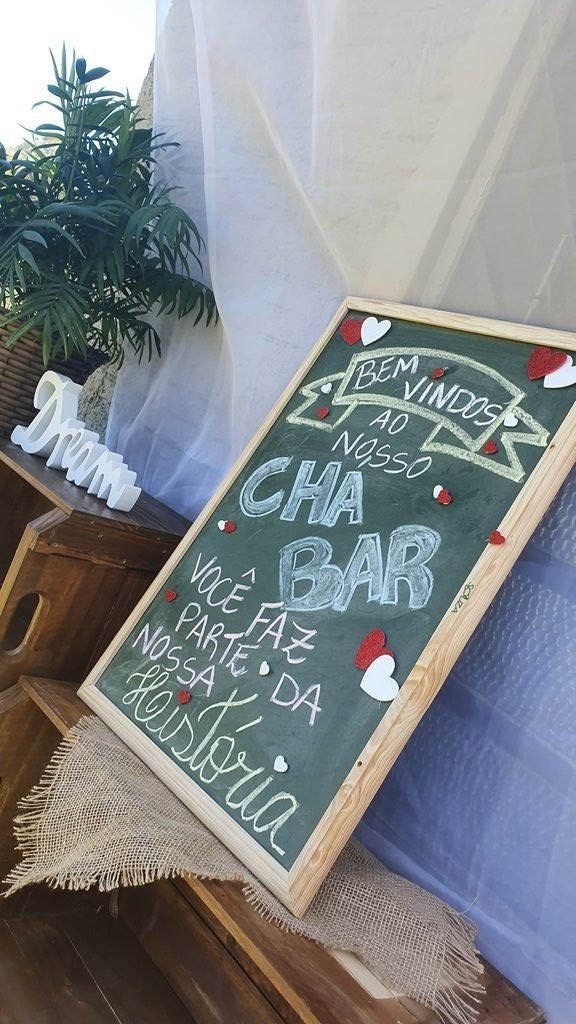 BEM
VINDOS
AO
NOSSO
CHA
BAR
VOCÊ FAZ
PARTE DA
NOSSA
História
SOUZA
Dream